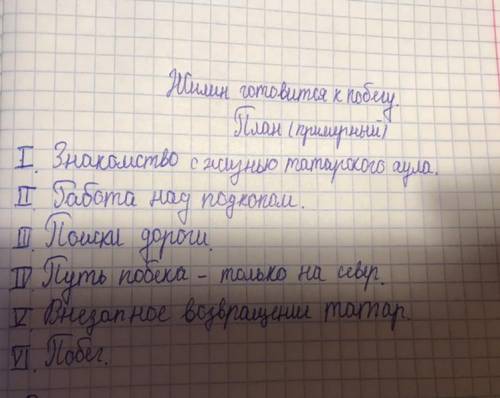 Жилин готовится к побегу.
План (примерный)
I. Знакомство с жизнью татарского аула.
II. Работа над подкопом.
III. Поиски дороги.
IV. Путь побека - только на север.
V. Внезапное возвращении татар.
VI. Побег.